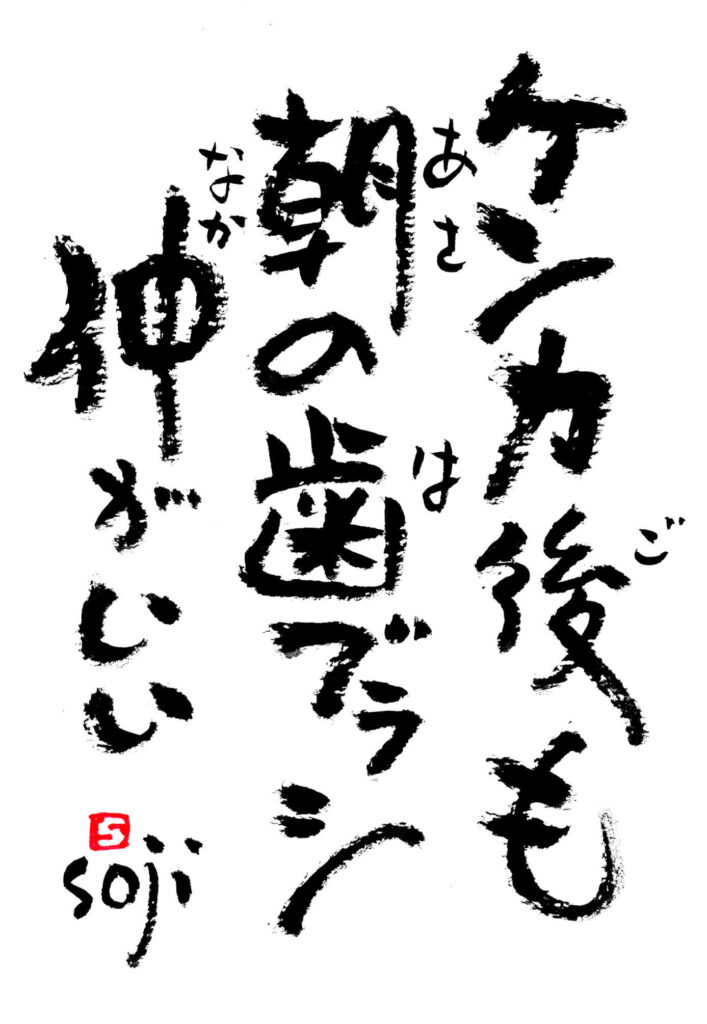 ケンカ後も
ご
朝の歯ブラシ
あさ
は
仲がいい
なか
S
soji